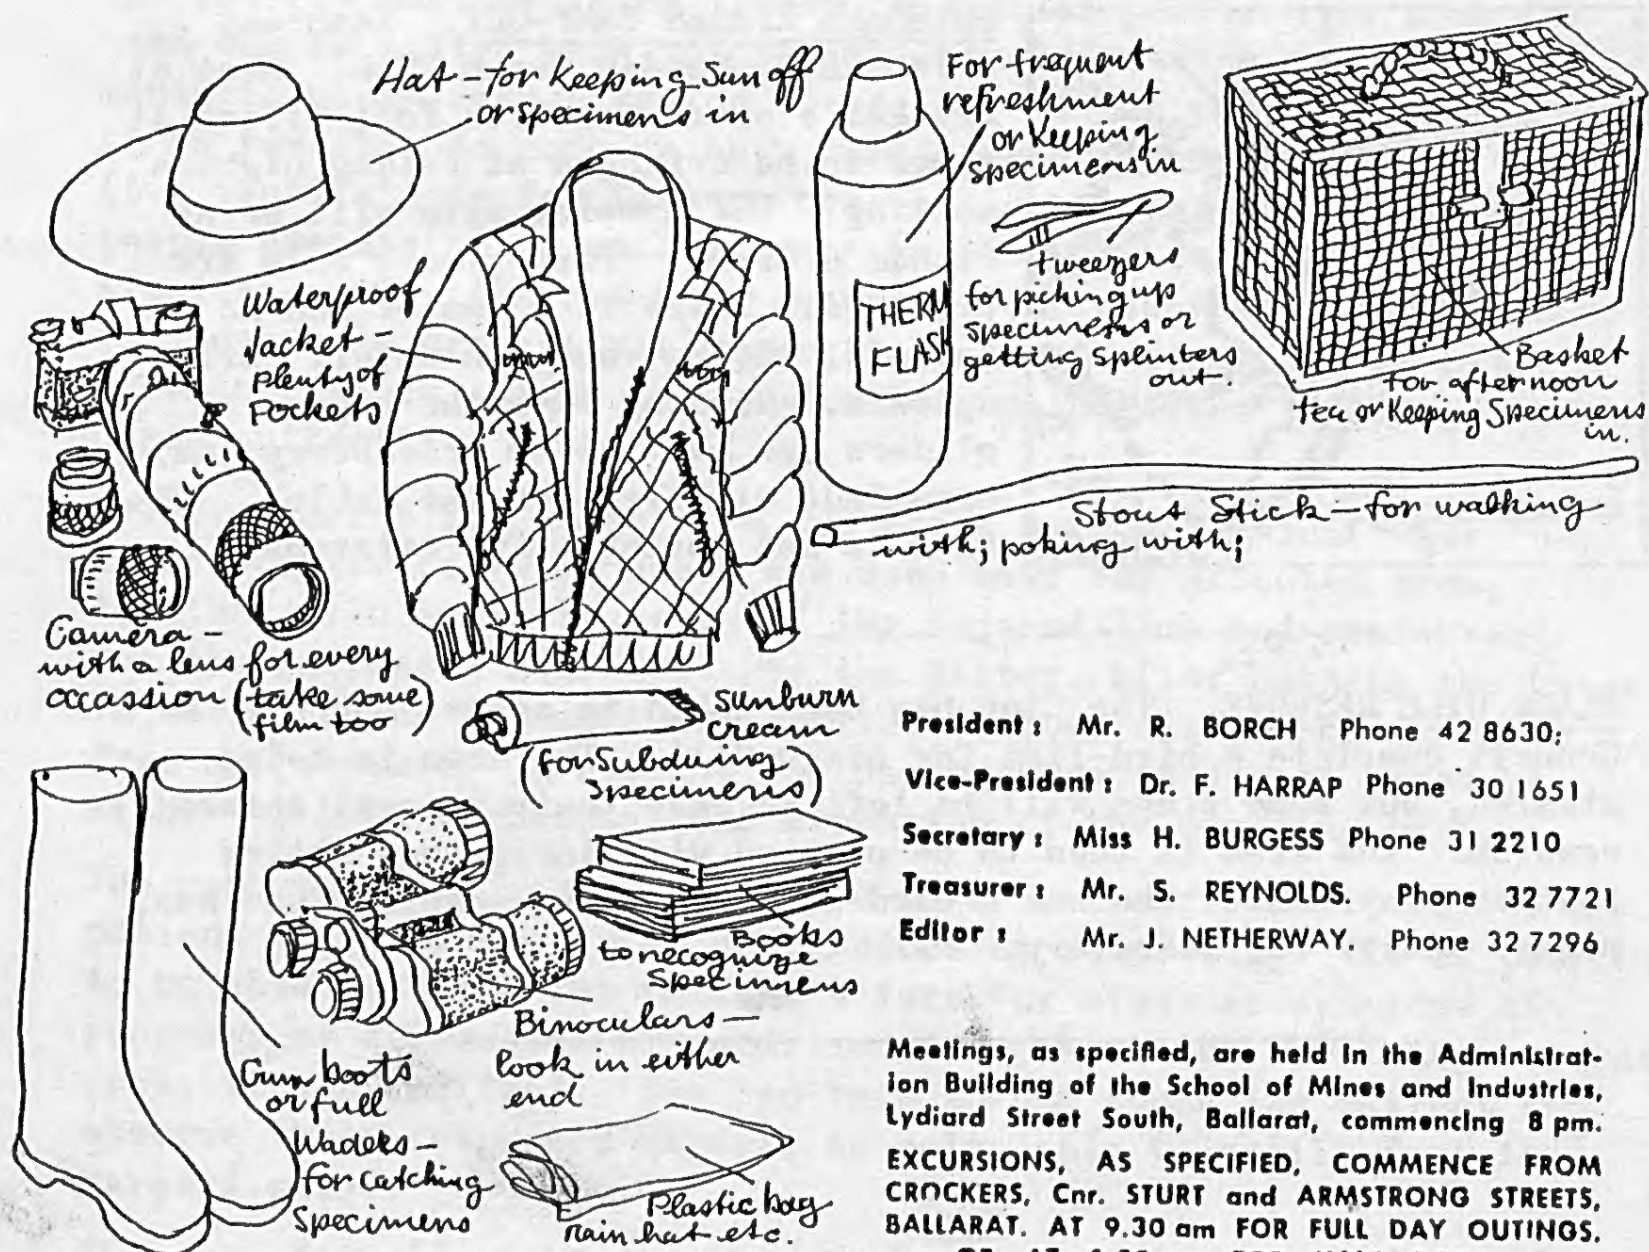 Hat – for Keeping Sun off
or specimens in
For frequent
refreshment
or Keeping
specimens in
tweezers
for picking up
specimens or
getting splinters
out.
Waterproof
Jacket –
plenty of
Pockets
THERM
FLASK
Basket
for afternoon
tea or Keeping Specimens
in.
Stout Stick – for walking
with; poking with;
Camera –
with a lens for every
occassion (take some
film too)
sunburn
cream
(for Subduing
Specimens)
Books
to recognize
Specimens
Binoculars –
look in either
end
Gum boots
or full
Waders –
for catching
Specimens
Plastic bag
rain hat etc.
President : Mr. R. BORCH Phone 42 8630;
Vice-President : Dr. F. HARRAP Phone 30 1651
Secretary : Miss H. BURGESS Phone 31 2210
Treasurer : Mr. S. REYNOLDS. Phone 32 7721
Editor : Mr. J. NETHERWAY. Phone 32 7296
Meetings, as specified, are held in the Administrat-
ion Building of the School of Mines and Industries,
Lydiard Street South, Ballarat, commencing 8 pm.
EXCURSIONS, AS SPECIFIED, COMMENCE FROM
CROCKERS, Cnr. STURT and ARMSTRONG STREETS,
BALLARAT. AT 9.30 am FOR FULL DAY OUTINGS.